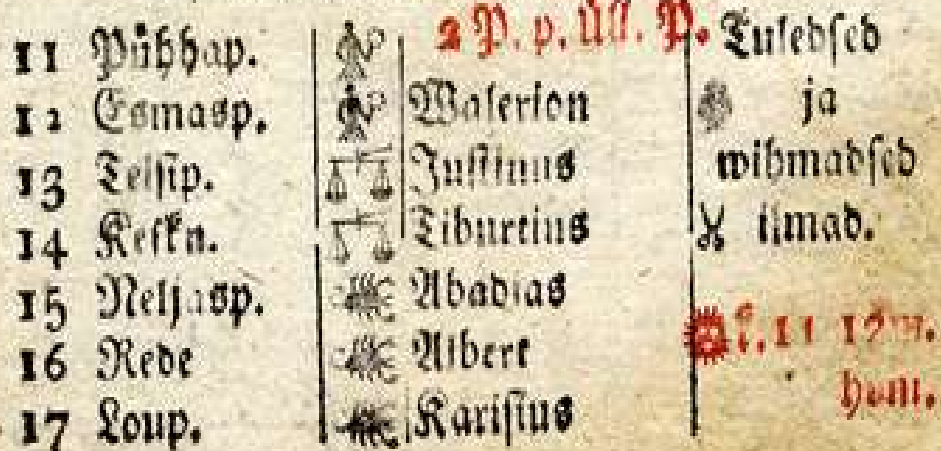 11 Pühhap. 2 P. p. Ül. P. Tuledsed
12 Esmasp. Walerion ja
13 Teisip. Justinus wihmadsed
14 Keskn. Tiburtius ilmad.
15 Neljasp. Abadias
16 Rede Albert k. 11
17 Loup. Karisius hom.